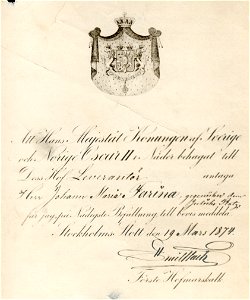 Att Hans Majestät Konungen af Sverige
och Norige Oscar II i Nåder behagat till
Dess Hof Leverantör antaga
Herr Johann Maria Farina, gegenüber dem
Jülichs Platz
får jag på Nådigste Befallning till bevis meddela
Stockholms Slott den 19 Mars 1874.
Förste Hofmarskalk